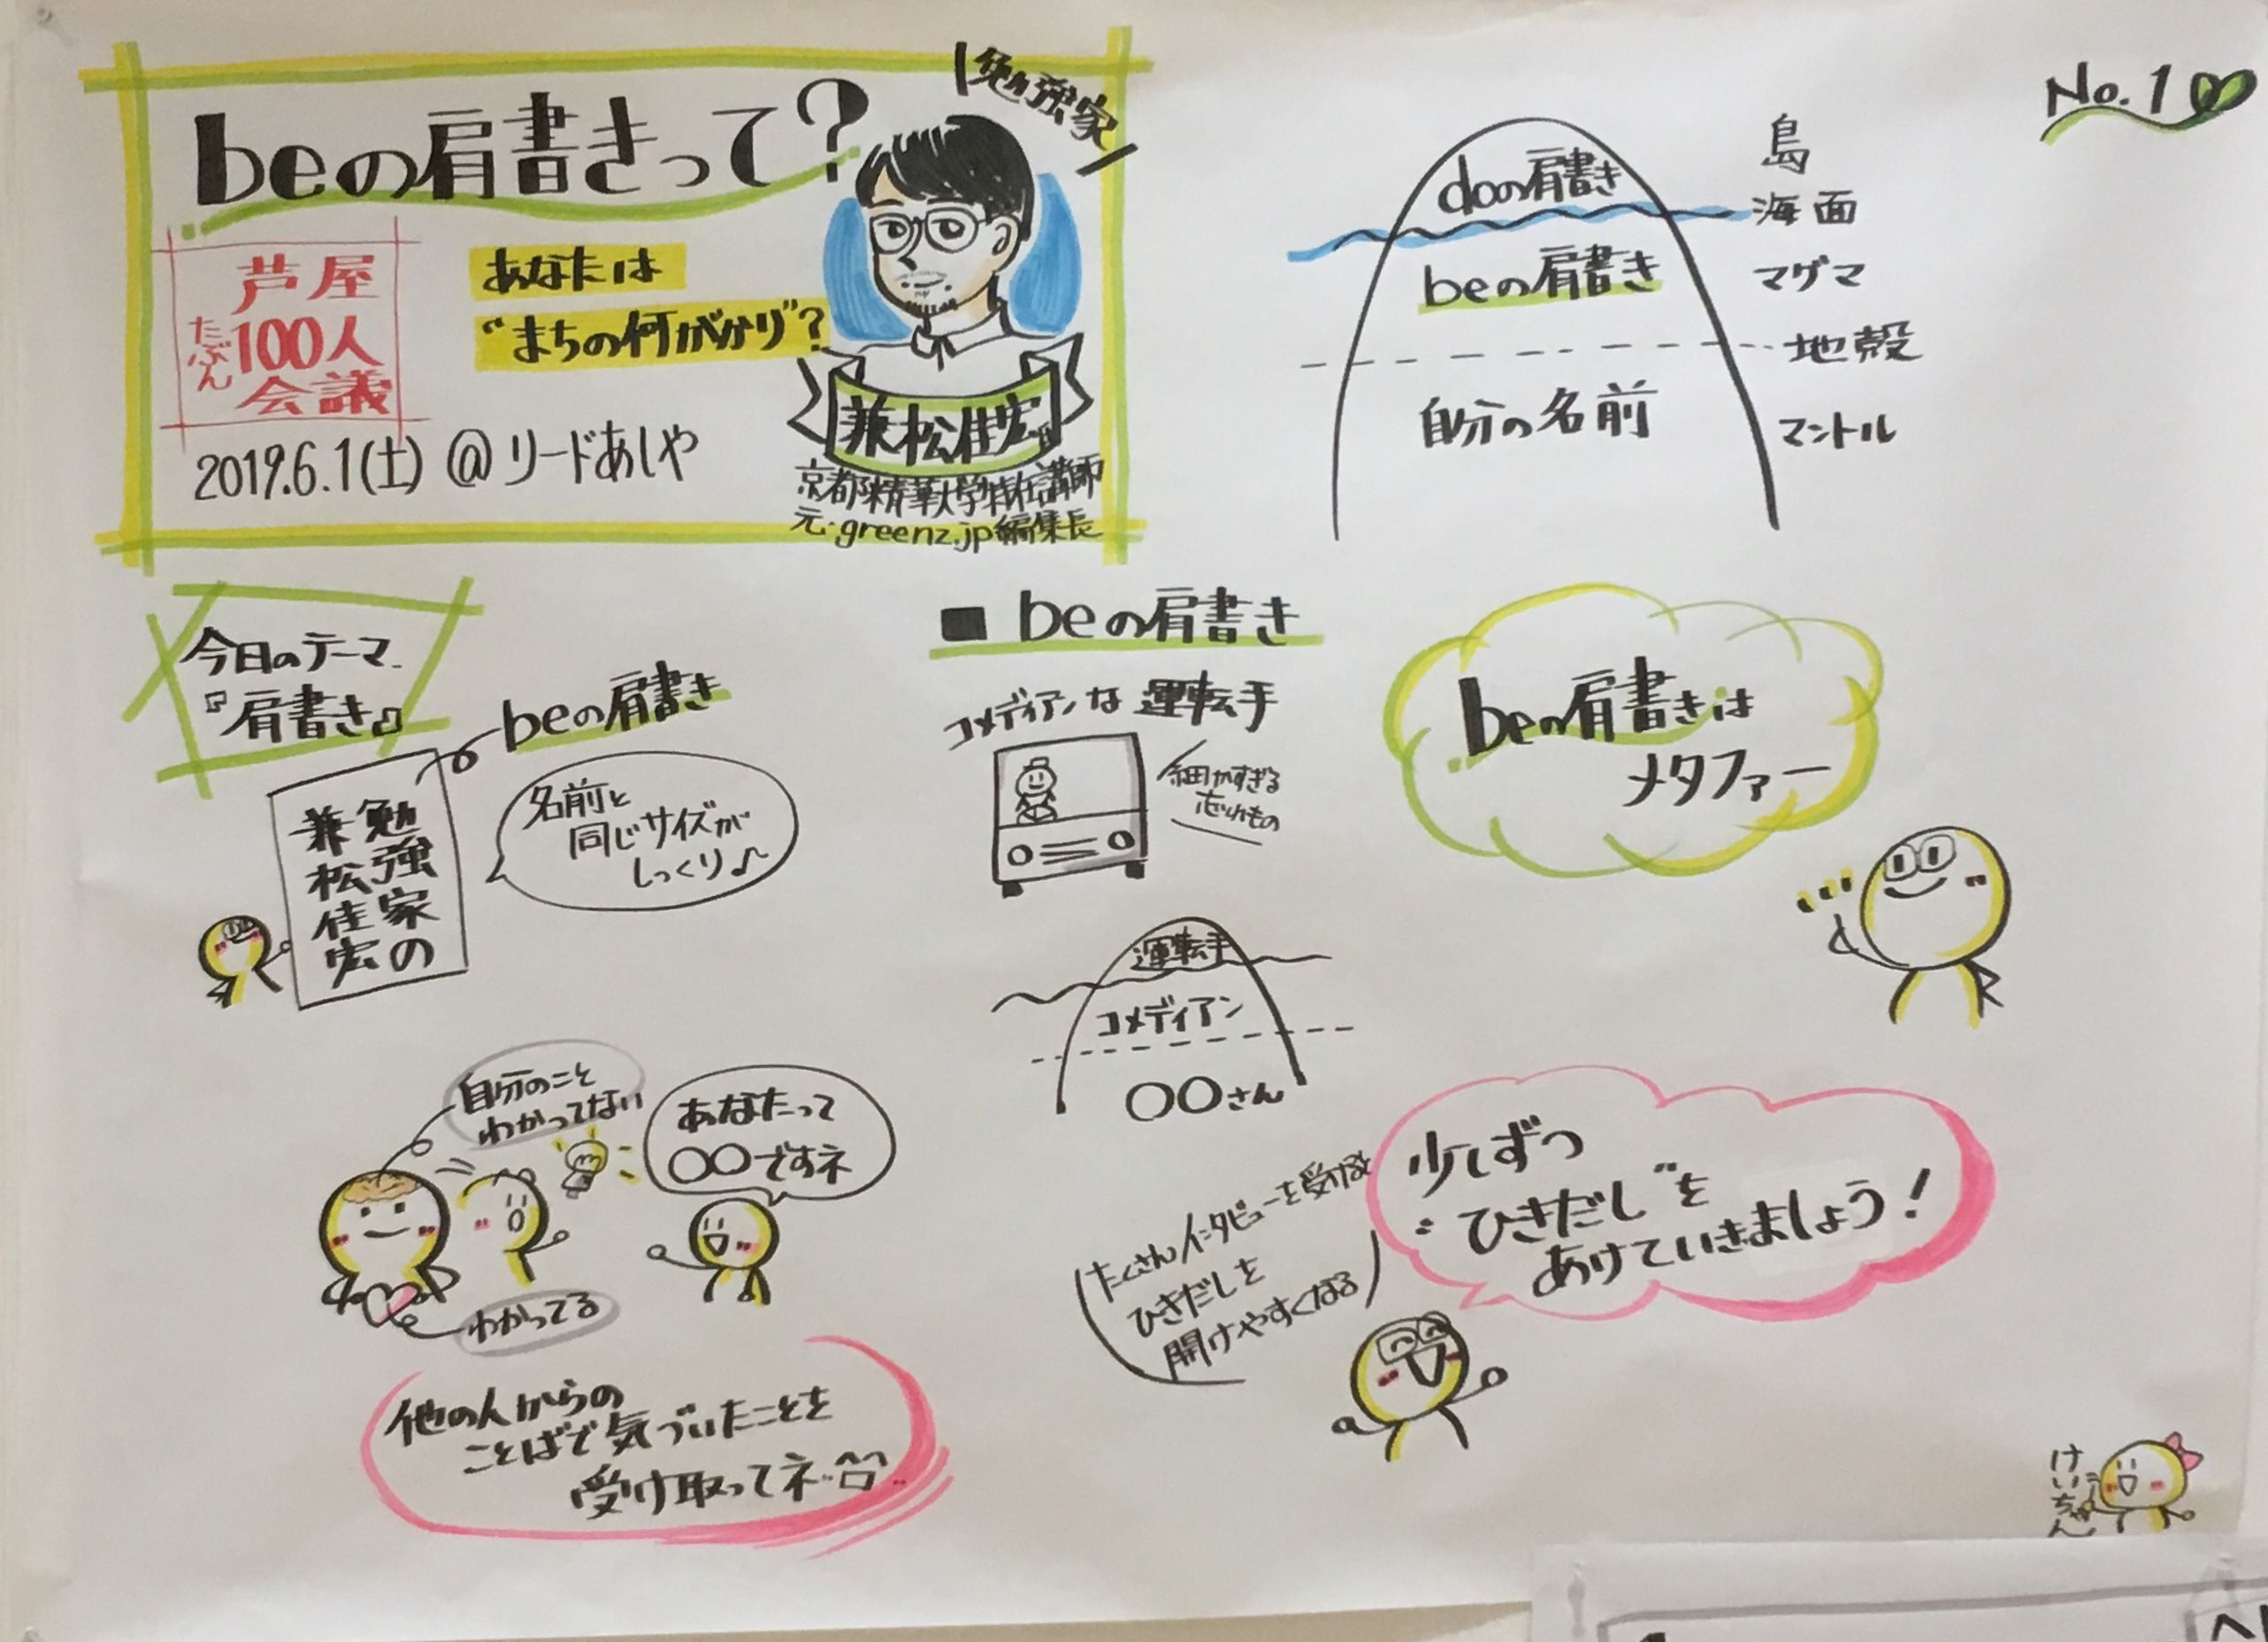 beの肩書きって?
勉強家
芦屋
たぶん100人
会議
あなたは
"まちの何がかり"?
2019.6.1(土) @リードあしや
兼松佳宏
京都精華大学特任講師
元・greenz.jp編集長
No.1
doの肩書き
島
海面
beの肩書き
マグマ
地殻
自分の名前
マントル
今日のテーマ
『肩書き』
beの肩書き
勉強家の
兼松佳宏
名前と
同じサイズが
しっくり♪
■ beの肩書き
コメディアンな運転手
細かすぎる
忘れもの
運転手
コメディアン
〇〇さん
beの肩書きは
メタファー
自分のこと
わかってない
あなたって
〇〇ですネ
わかってる
他の人からの
ことばで気づいたことを
受け取ってネ
たくさんインタビューを受けると
ひきだしを
開けやすくなる
少しずつ
"ひきだし"を
あけていきましょう!
けいちゃん